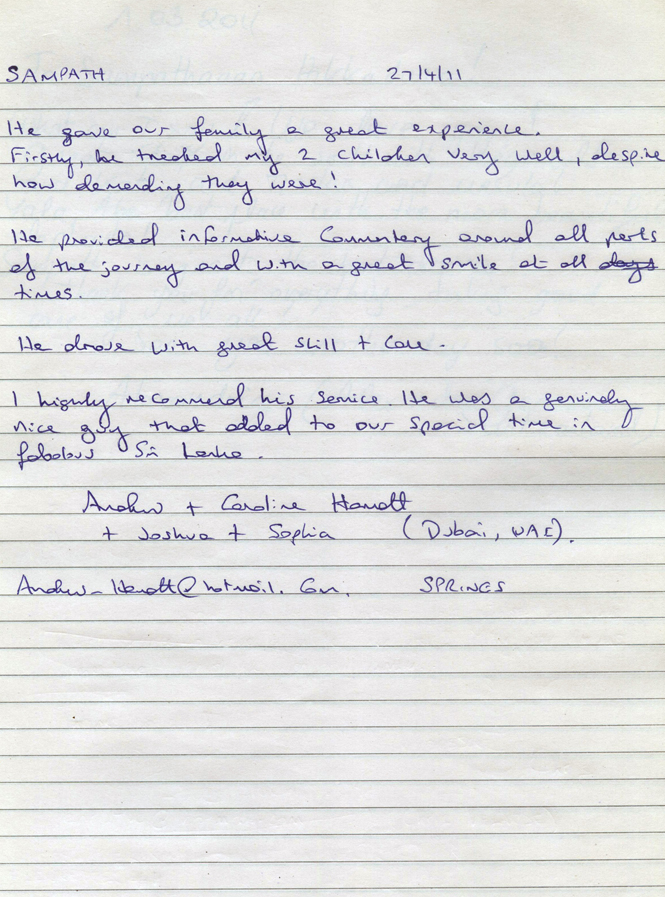 SAMPATH 27/4/11
He gave our family a great experience.
Firstly, he treated my 2 children very well, despite
how demanding they were!
He provided informative Commentary around all parts
of the journey and with a great smile at all days
times.
He drove with great skill + care.
I highly recommend his service. He was a genuinely
nice guy that added to our special time in
fabolous Sri Lanka.
Andrew + Caroline
+ Joshua + Sophia (Dubai, UAE).
SPRINGS